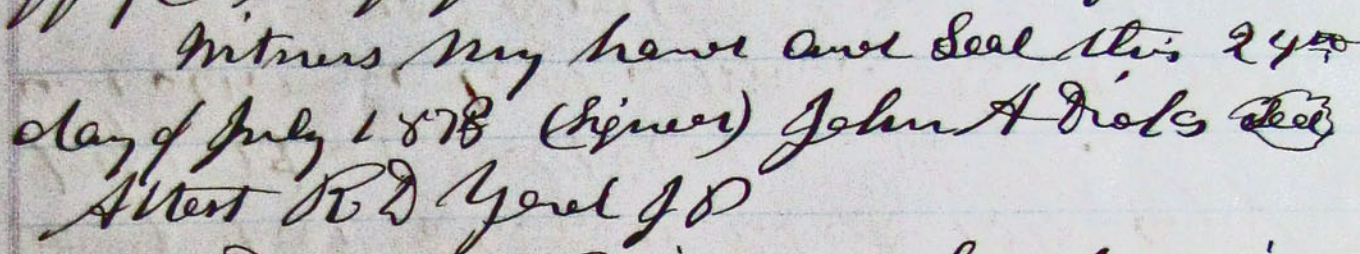 Witness my hand and Seal this 24th
day of July 1878 (Signed) John A Dicks Seal
Attest R D Yard J P